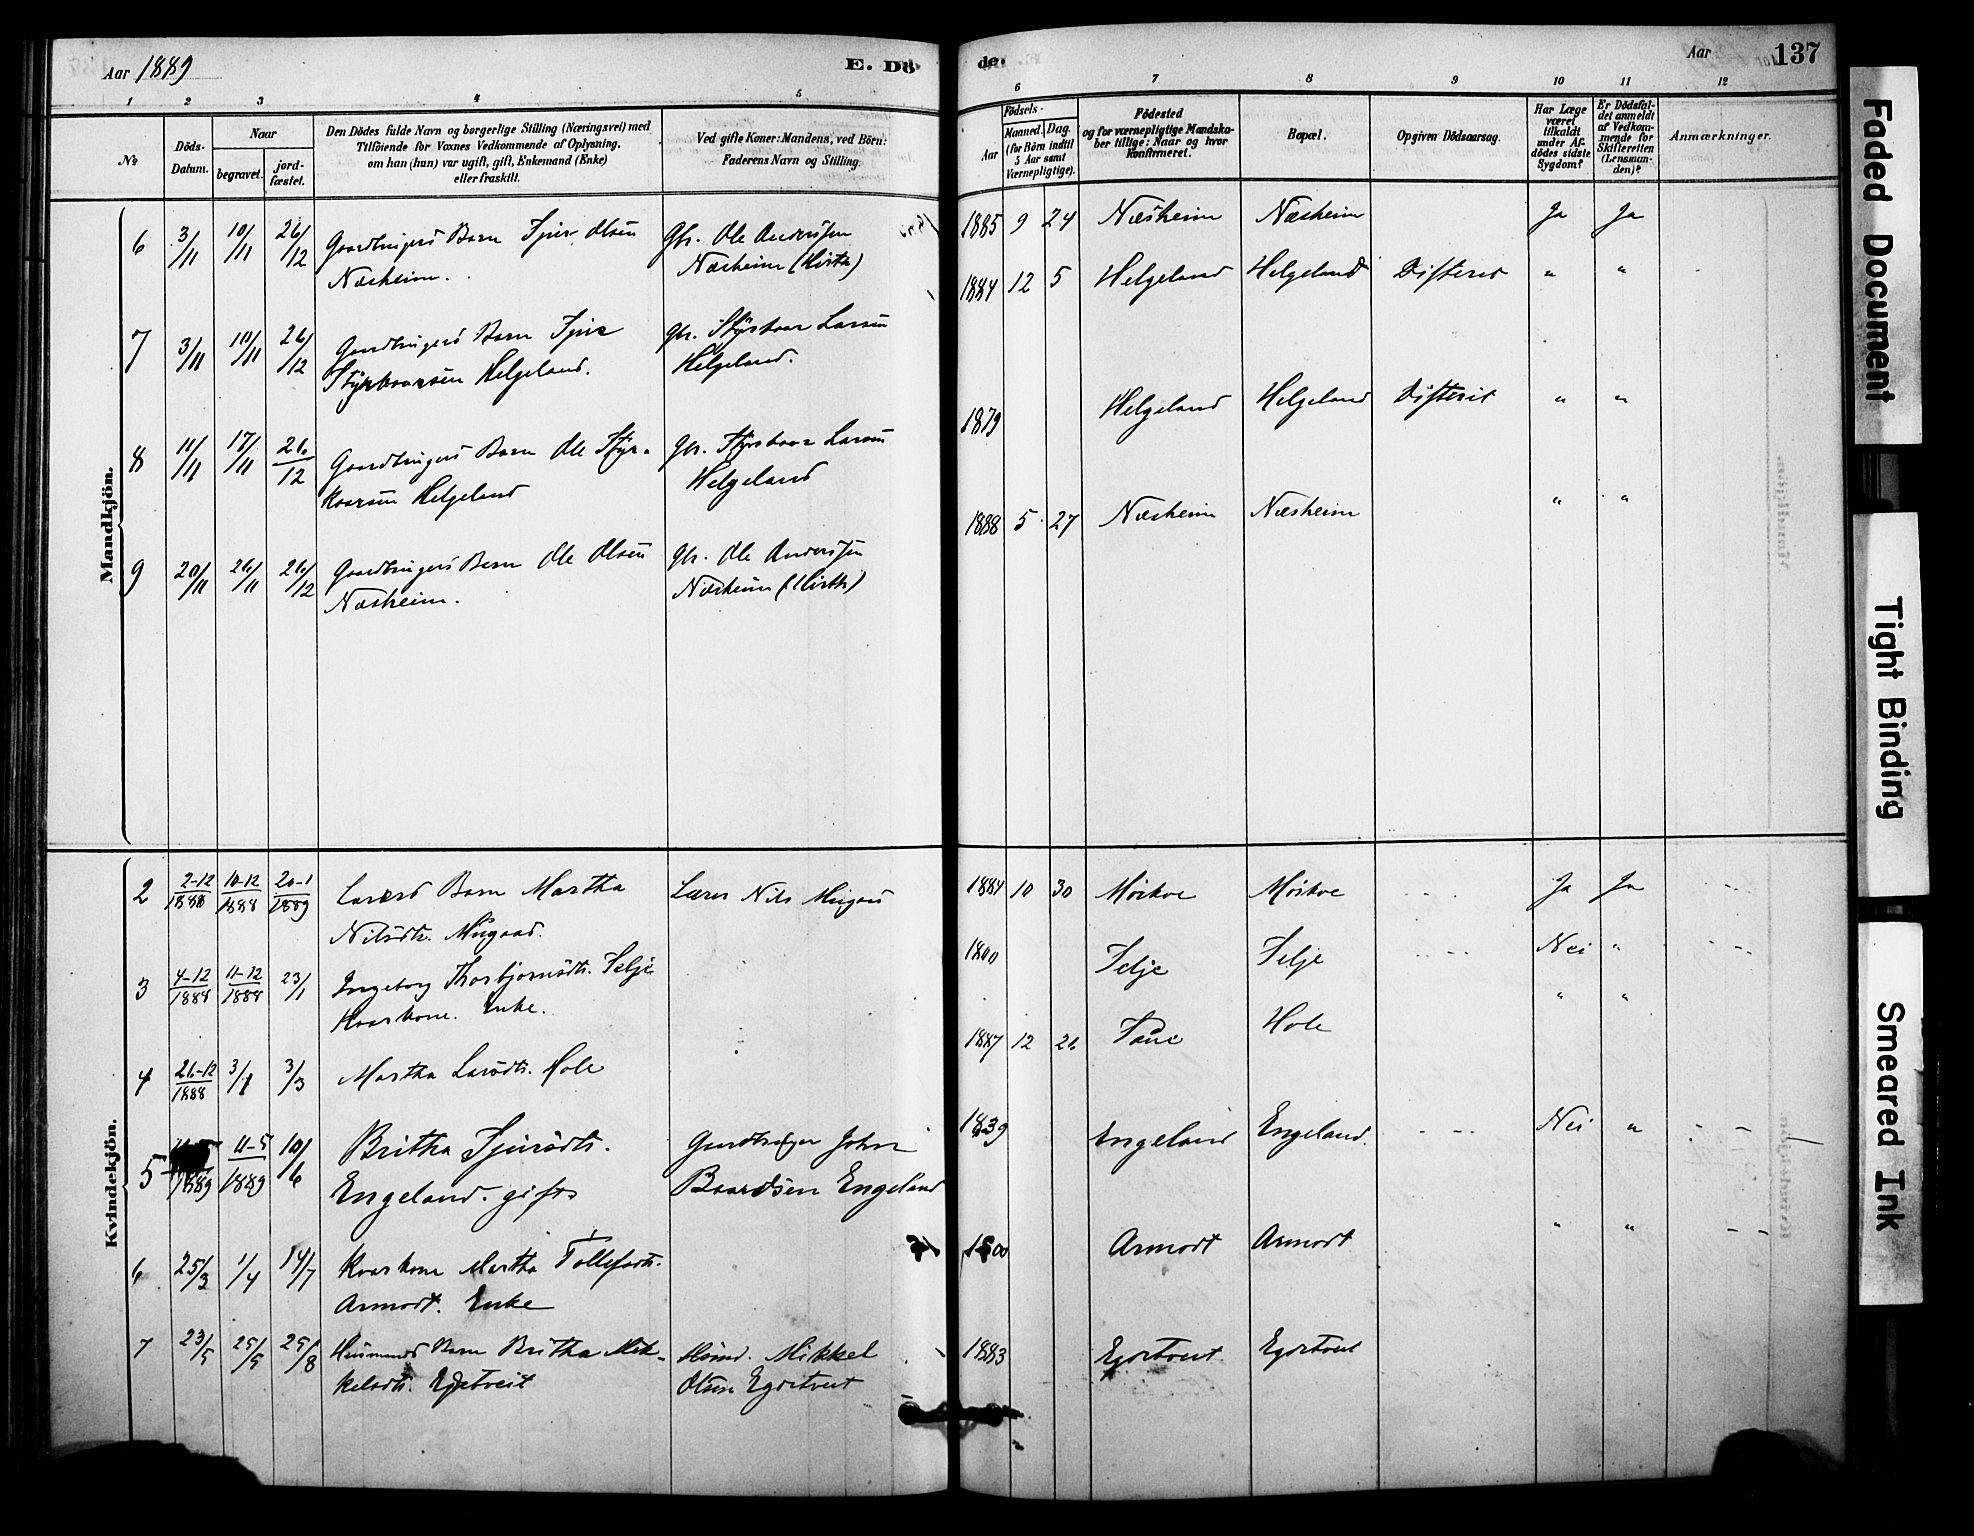 Aar 1889
E. Dö-
de.
Aar
137
1 2 3 4 5
6 7 8 9 10 11 12
No
Döds-
Datum.
Naar
begravet.
jord-
fæstet.
Den Dödes fulde Navn og borgerlige Stilling (Næringsvei) med
Tilföiende for Voxnes Vedkommende af Oplysning,
om han (hun) var ugift, gift, Enkemand (Enke)
eller fraskilt.
Ved gifte Koner: Mandens, ved Börn:
Faderens Navn og Stilling.
Födsels-
Aar
Maaned. Dag.
(for Börn indtil
5 Aar samt
Værnepligtige).
Födested
og for værnepligtige Mandska-
ber tillige: Naar og hvor
konfirmeret.
Bopæl.
Opgiven Dödsaarsag.
Har Læge
været
tilkaldt
under Af-
dödes sidste
Sygdom?
Er Dödsfal-
det anmeldt
af Vedkom-
mende for
Skifteretten
(Lensman-
den)?
Anmærkninger.
Mandkjön.
6 3/11 10/11 26/12 Gaardbrugers Barn Sjur Olsen Gbr. Ole Anderssen 1885 9 24 Næsheim Næsheim Ja Ja
Næsheim. Næsheim (Hirth)
7 3/11 10/11 26/12 Gaardbrugers Barn Sjur Gbr. Styrkaar Larsen 1884 12 5 Helgeland Helgeland Difterit " "
Styrkaarsen Helgeland. Helgeland.
8 11/11 17/11 26/12 Gaardbrugers Barn Ole Styr- Gbr. Styrkaar Larsen 1879 Helgeland Helgeland Difterit " "
kaarsen Helgeland Helgeland
9 20/11 26/11 26/12 Gaardbrugers Barn Ole Olsen Gbr. Ole Anderssen 1888 5 27 Næsheim Næsheim " "
Næsheim. Næsheim (Hirth)
Kvindekjön.
2 2-12/1888 10-12/1888 20-1/1889 Lærers Barn Martha Lærer Nils 1884 10 30 Mörkve Mörkve Ja Ja
Nilsdtr.
3 4-12/1888 11-12/1888 23/1 Ingeborg Thorbjørnsdtr. Selje 1800 Selje Selje Nei "
Kaarkone. Enke.
4 26-12/1888 3/1 3/3 Martha Larsdtr. Hole 1887 12 Hole " "
5 1889 11-5/1889 10/6 Britha Sjursdtr. Gardbruger John 1839 Engeland Engeland. Nei "
Engeland. gift Baardsen Engeland
6 25/3 1/4 14/7 Kaarkone Martha Tollefsdtr. 1800 Armodt Armodt " "
Armodt. Enke
7 23/5 29/5 25/8 Husmands Barn Britha Mik- Husmd. Mikkel 1883 Egdetveit Egdetveit
kelsdtr. Egdetveit Olsen Egdetveit
Faded Document
Tight Binding
Smeared Ink